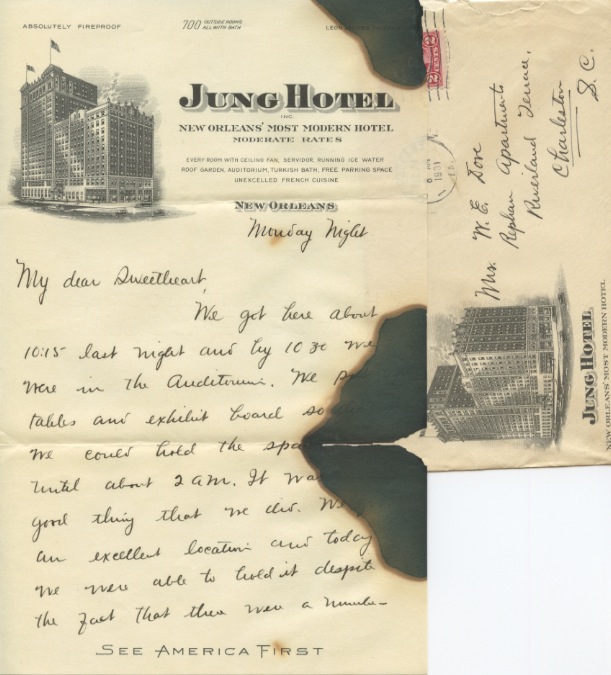 ABSOLUTELY FIREPROOF
700 OUTSIDE ROOMS ALL WITH BATH
LEON
JUNG HOTEL
INC.
NEW ORLEANS' MOST MODERN HOTEL
MODERATE RATES
EVERY ROOM WITH CEILING FAN, SERVIDOR, RUNNING ICE WATER
ROOF GARDEN, AUDITORIUM, TURKISH BATH, FREE PARKING SPACE
UNEXCELLED FRENCH CUISINE
NEW ORLEANS
Monday Night
My dear Sweetheart,
We got here about
10:15 last night and by 10 30 we
were in the Auditorium. We
tables and exhibit board so
we could hold the
until about 2 am. It was
good thing that we did. We
an excellent location and today
we were able to hold it despite
the fact that there were a number
SEE AMERICA FIRST
2 CENTS 2
1931
Mrs. W. E. Dove
Rephan Apartments
Riverland Terrace,
Charleston
S. C.
JUNG HOTEL
NEW ORLEANS' MOST MODERN HOTEL